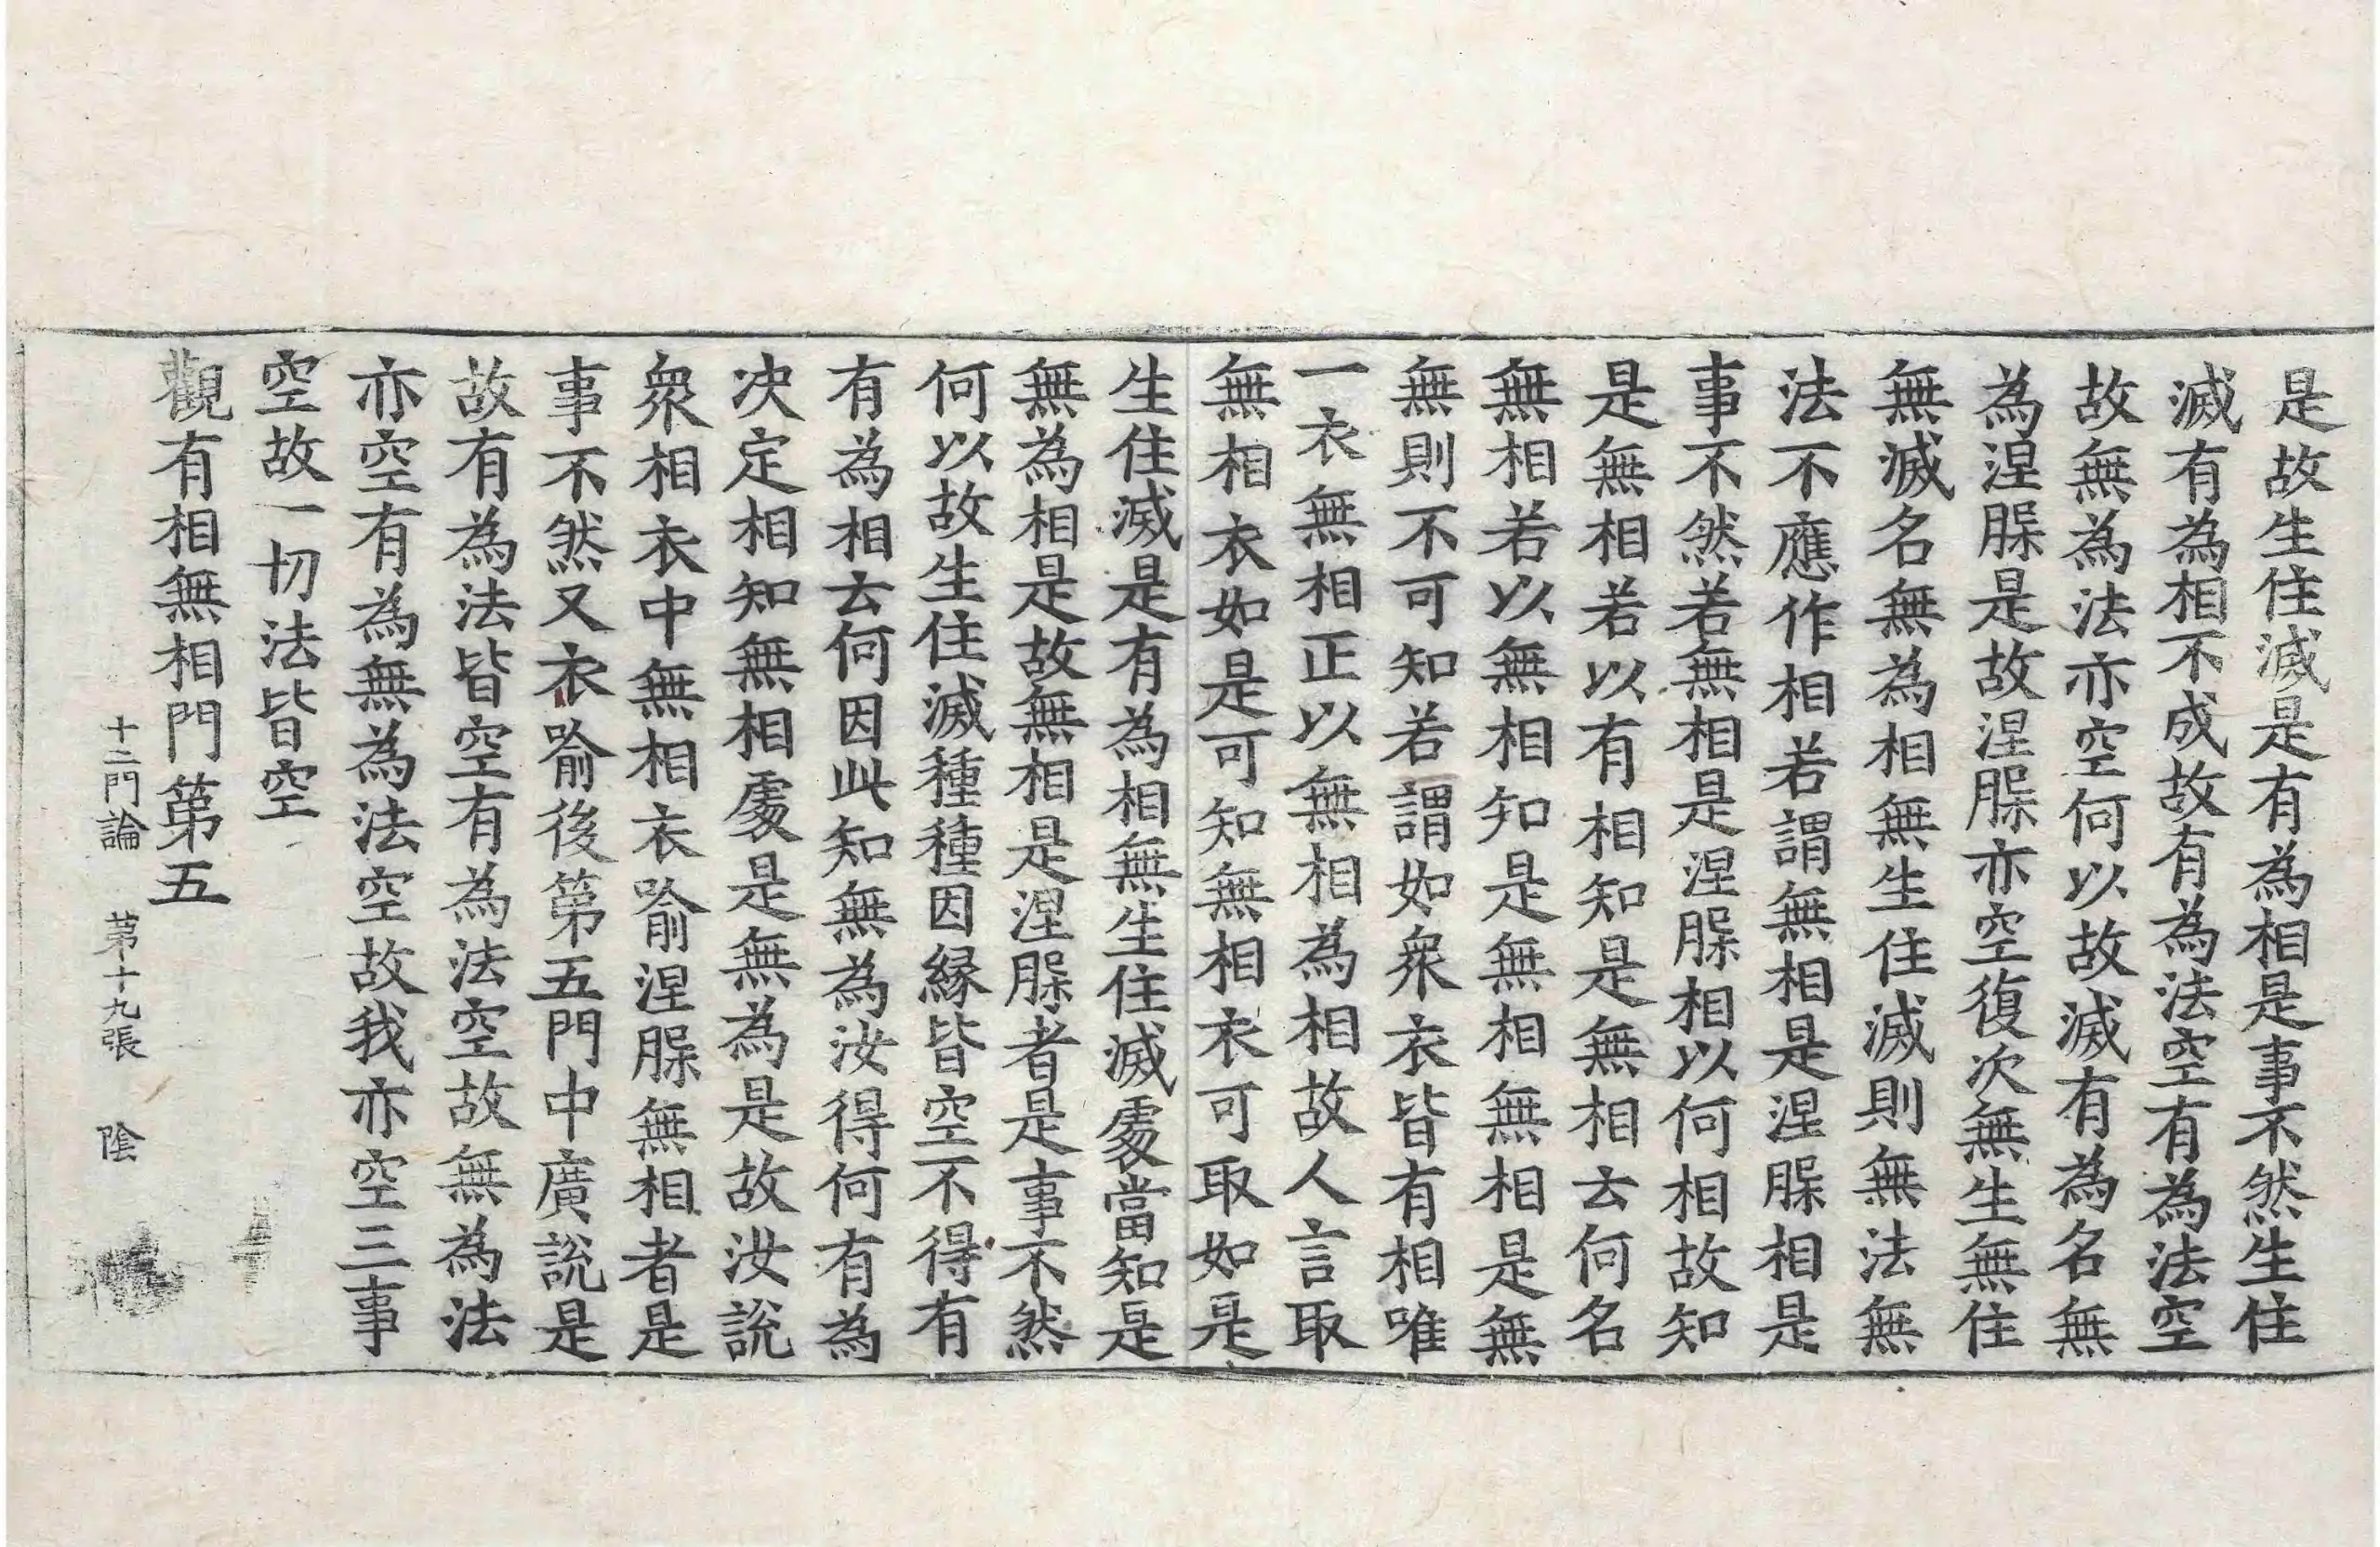 是故生住滅是有為相是事不然生住
滅有為相不成故有為法空有為法空
故無為法亦空何以故滅有為名無
為涅槃是故涅槃亦空復次無生無住
無滅名無為相無生住滅則無法無
法不應作相若謂無相是涅槃相是
事不然若無相是涅槃相以何相故知
是無相若以有相知是無相云何名
無相若以無相知是無相無相是無
無則不可知若謂如衆衣皆有相唯
一衣無相正以無相為相故人言取
無相衣如是可知無相衣可取如是
生住滅是有為相無生住滅處當知是
無為相是故無相是涅槃者是事不然
何以故生住滅種種因緣皆空不得有
有為相云何因此知無為汝得何有為
决定相知無相處是無為是故汝說
衆相衣中無相衣喻涅槃無相者是
事不然又衣喻後第五門中廣說是
故有為法皆空有為法空故無為法
亦空有為無為法空故我亦空三事
空故一切法皆空
觀有相無相門第五
十二門論 第十九張 陰